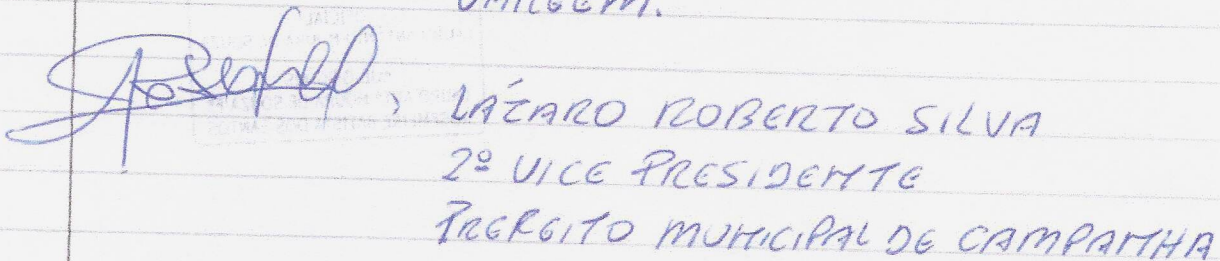 , LÁZARO ROBERTO SILVA
2º VICE PRESIDENTE
PREFEITO MUNICIPAL DE CAMPANHA